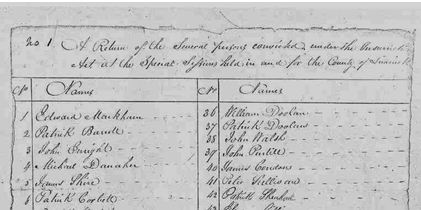 No 1 A Return of the Several persons convicted under the Insurrect
Act at the Special Sessions held in and for the County of Limerick
No Names No Names
1 Edward Markham 36 William Doolan
2 Patrick Barrett 37 Patrick Doolan
3 John Enright 38 John Walsh
4 Michael Danaher 39 John
5 James Shine 40 James Condon
6 Patrick Corbett 41 Peter
42 Patrick
43